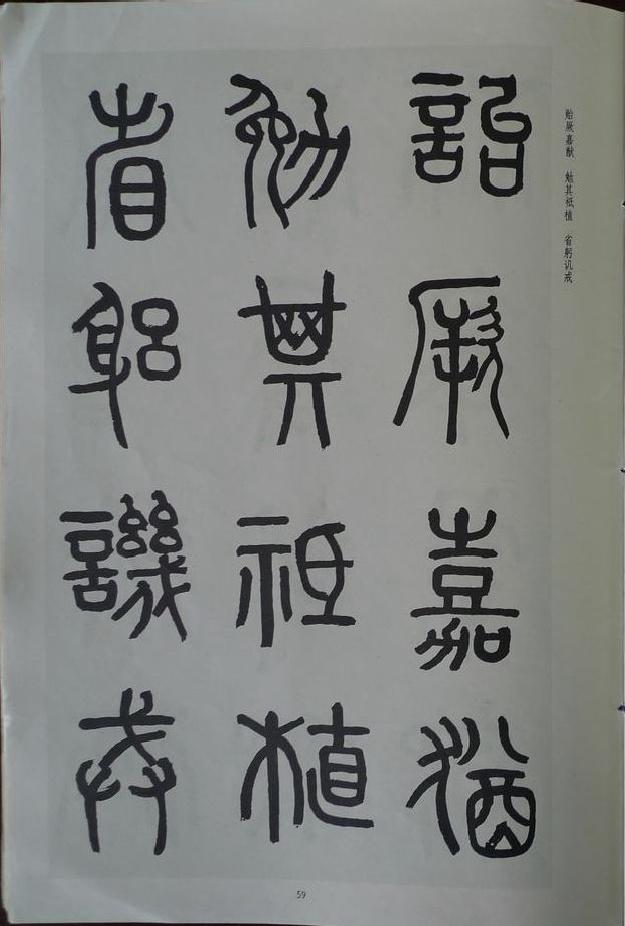 贻厥嘉猷 勉其祗植 省躬讥戒
詒厥嘉猶
勉其祗植
省躳譏戒
59